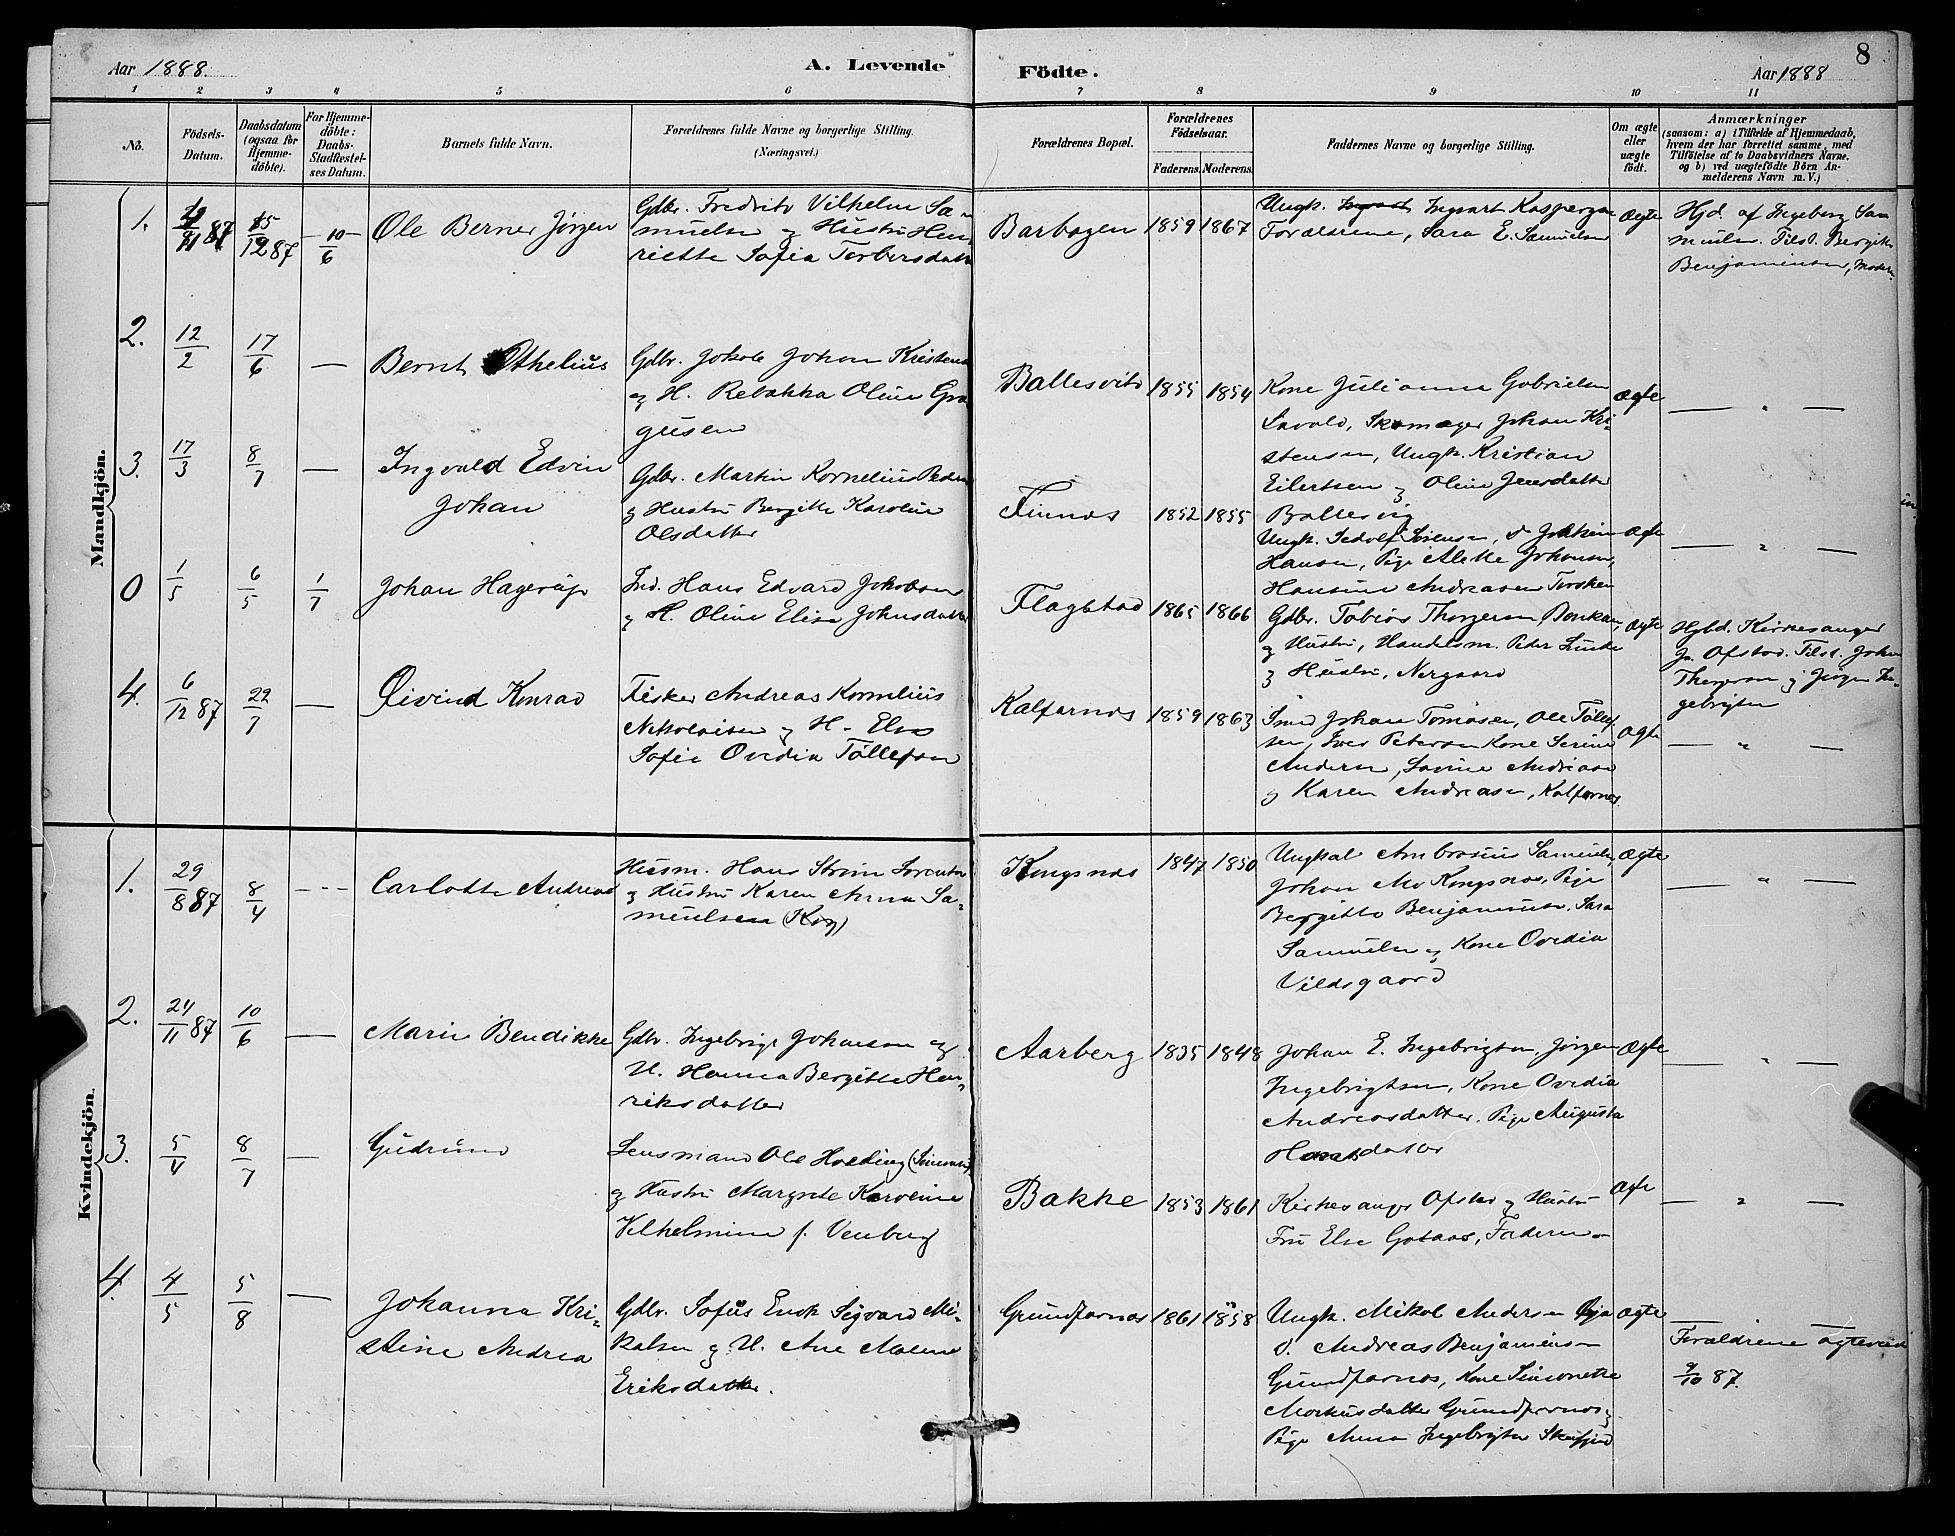 Aar 1888.
A. Levende Födte.
Aar 1888
8
1 2 3 4 5 6 7 8 9 10 11
No.
Födsels-Datum.
Daabsdatum (ogsaa for Hjemmedöbte).
For Hjemmedöbte: Daabs-Stadfæstelses Datum.
Barnets fulde Navn.
Forældrenes fulde Navne og borgerlige Stilling.
(Næringsvei.)
Forældrenes Bopæl.
Forældrenes Födselsaar.
Faderens. Moderens.
Faddernes Navne og borgerlige Stilling.
Om ægte eller uægte födt.
Anmærkninger
(saasom: a) i Tilfælde af Hjemmedaab, hvem der har forrettet samme, med Tilföielse af to Daabsvidners Navne. og b) ved uægtefödte Börn Anmelderens Navn m. V.)
Mandkjön.
1.
15/12 87
10/6
Ole Berner Jörgen
Gdbr. Fredrik Vilhelm Sa-
muelsen og Hustru Hen
riette Sofia Torbersdatter
Barbogen 1859 1867
Ungk. Ingvart Kaspersen
Forældrene, Sara E. Samuelsen
Ægte
Hjd. af Ingeberg Sam
muels. Tilst. Bergitte
Benjaminsen, Moder
2. 12/2 17/6 —
Bernt Othelius
Gdbr. Jakob Johan Kristensen
og H. Rebekka Oline Gra
gusen
Ballesvik 1855 1854
Kone Julianna Gabrielsen
Lavold, Skomager Johan Kri-
stensen, Ungk. Kristian
Eilertsen og Oline Jensdatter
Ballesvig
Ægte
— " —
3. 17/3 8/7 —
Ingvald Edvin
Johan
Gdbr. Martin Kornelius Peders
og Hustru Bergitte Karoline
Olsdatter
Finnes 1852 1855
Ungk. Sedolf Sörensen, d. Joakim
Hansen, Pige Alette Johansen,
Hansine Andreasen Torsken
Ægte
— " —
0 1/5 6/5 1/7
Johan Hagerup
Ind. Hans Edvard Jakobsen
og H. Oline Elisa Johnsdatter
Flagstad 1865 1866
Gdbr. Tobias Thorgersen Bonkan,
og Hustru, Handelsm. Peder Lunde
og Hustru, Nergaard
Ægte
Hjbd. Kirkesanger
Jn. Ofstad. Tilst. Johan
Thorgersen og Jörgen In-
gebrigtsen
4. 6/12 87 22/7 —
Öivind Konrad
Fisker Andreas Kornelius
Nikolaisen og H. Elen
Sofie Ovidia Töllefsen
Kalfarnes 1859 1863
Smed Johan Tomasen, Ole Töllef
sen, Iver Petersen Kone Serine
Andersen, Lavine Andreasen
og Karen Andreasen, Kalfarnes
Ægte
— " —
Kvindekjön.
1. 29/8 87 8/4 ---
Carlotte Andrea
Husm. Hans Ström Lorentsen
og Hustru Karen Anna Sa-
muelsen (Kog)
Kongsnes 1847 1850
Ungkal Ambrosius Samuels,
Johan Mo Kongsnes, Pige
Bergitte Benjaminsen, Sara
Samuelsen og Kone Ovedia
Vildsgaard
Ægte
— " —
2. 24/11 87 10/6 —
Marie Bendikke
Gdbr. Ingebrigt Johansen og
H. Hanna Bergitte Hen-
riksdatter
Aarberg 1835 1848
Johan E. Ingebrigtsen, Jörgen
Ingebrigtsen, Kone Ovedia
Andreasdatter. Pige Augusta
Hansdatter
Ægte
— " —
3. 5/4 8/7 —
Gudrun
Lensmand Ole Holding (Simonsen)
og Hustru Margrete Karoline
Vilhelmine f. Venberg
Bakke 1853 1861
Kirkesanger Ofstad og Hustru
Fru Else Gotaas, Faderen
Ægte
— " —
4. 4/5 5/8 —
Johanna Kri-
stine Andrea
Gdbr. Sofus Enok Sigvard Mi-
kalsen og H. Ane Malene
Eriksdatter.
Grundfarnes 1861 1858
Ungk. Mikal Andersen
d. Andreas Benjaminsen
Grundfarnes, Kone Simonette
Markusdatter Grundfarnes og
Pige Anna Ingebrigtsen
Ægte
Forældrene ægteviet
9/10 87.